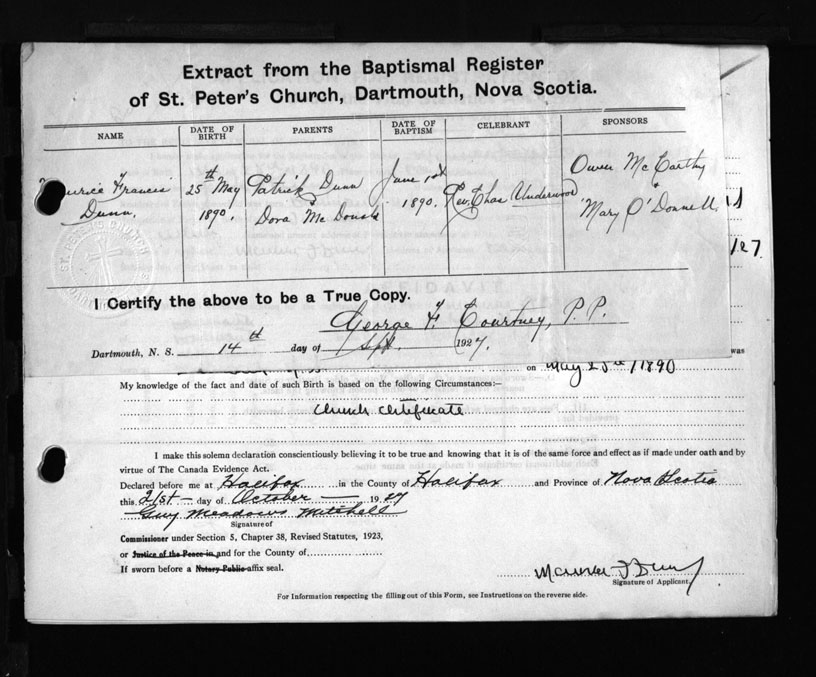 Extract from the Baptismal Register
of St. Peter's Church, Dartmouth, Nova Scotia.
NAME DATE OF BIRTH PARENTS DATE OF BAPTISM CELEBRANT SPONSORS
Francis Dunn. 25th May 1890. Patrick Dunn & Dora McDonald June 1st 1890. Rev. Chas Underwood Owen McCarthy & Mary O'Donnell
I Certify the above to be a True Copy.
George F. Courtney, P.P.
Dartmouth, N. S. 14th day of Sept. 1927.
was
on May 25th/1890
My knowledge of the fact and date of such Birth is based on the following Circumstances:—
Church Certificate
I make this solemn declaration conscientiously believing it to be true and knowing that it is of the same force and effect as if made under oath and by
virtue of The Canada Evidence Act.
Declared before me at Halifax in the County of Halifax and Province of Nova Scotia
this 21st day of October 1927
Guy Meadows Mitchell
Signature of
Commissioner under Section 5, Chapter 38, Revised Statutes, 1923,
or Justice of the Peace in and for the County of
If sworn before a Notary Public affix seal.
Maurice F Dunn
Signature of Applicant
For Information respecting the filling out of this Form, see Instructions on the reverse side.